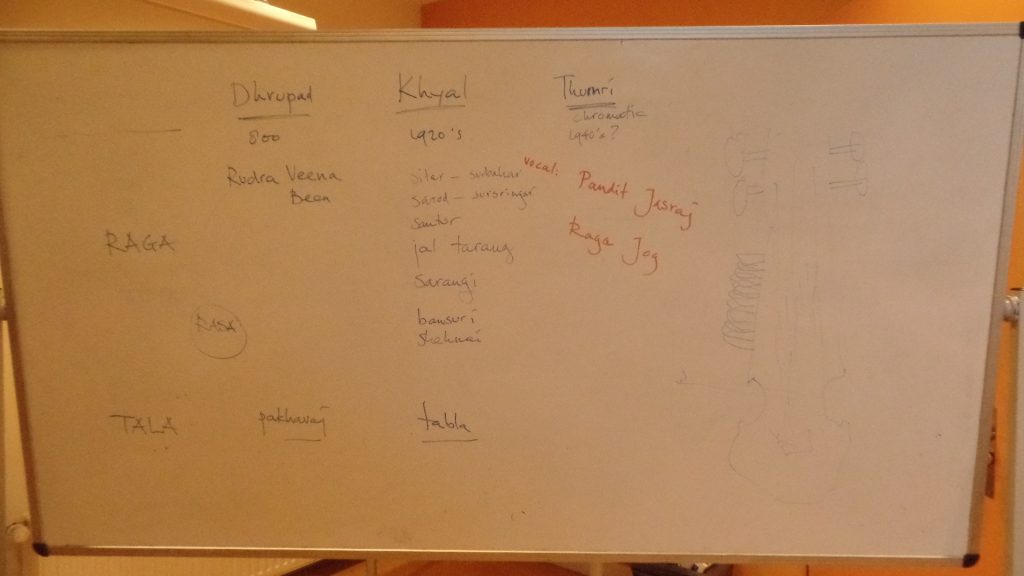 Dhrupad Khyal Thumri
chromatic
800 1920's 1940's?
Rudra Veena sitar – surbahar vocal: Pandit Jasraj
Been sarod – sursringar
santur
RAGA jal tarang Raga Jog
sarangi
RASA bansuri
shehnai
TALA pakhavaj tabla